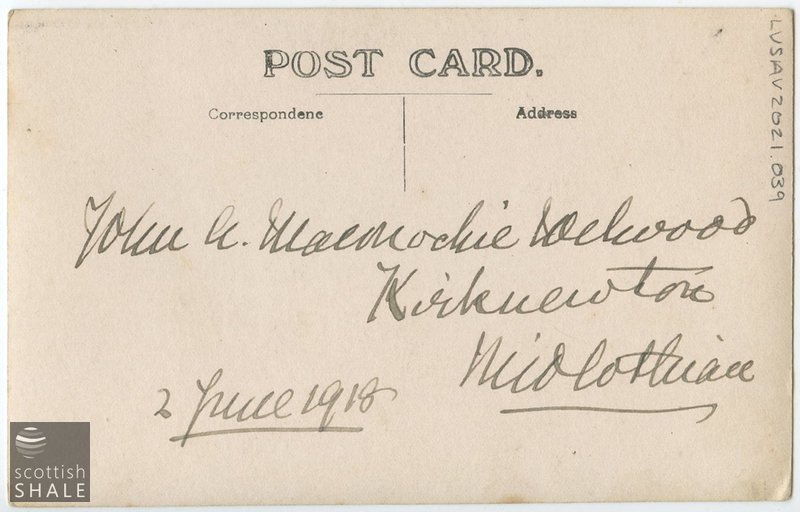 POST CARD.
Correspondenc
Address
LVSAV2021.039
John A. Maconochie Welwood
Kirknewton
Midlothian
2 June 1918
scottish
SHALE